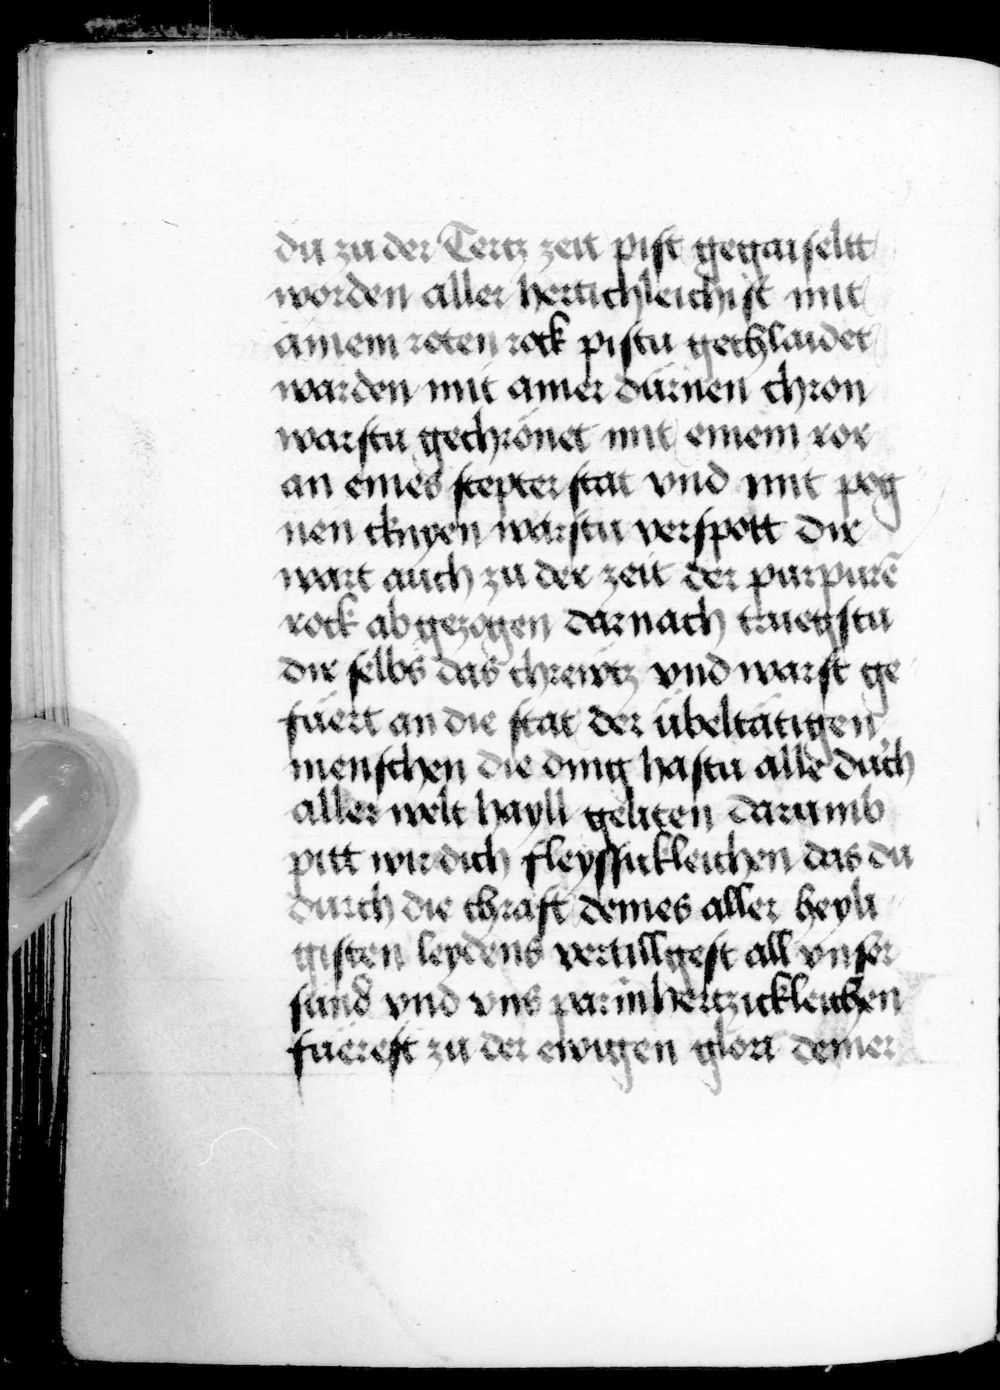 du zu der Tertz zeit pist gegaiseltt
worden aller hertichleichist mit
ainem roten rock pistu gechlaidet
warden mit ainer dürnen chron
warstu gechrönet mit einem ror
an eines scepter stat vnd mit pog
nen chnyen warstu verspott dir
wart auch zu der zeit der purpurē
rock abgezogen darnach truegstu
dir selbs das chrewtz vnd warst ge
füert an die stat der übeltätigen
menschen die ding hastu alle durch
aller welt hayll geliten darumb
pitt wir dich fleyssickleichen das du
durch die chraft deines aller heyli
gisten leydens vertillgest all vnser
sünd vnd vns parmhertzickleichen
füerest zu der ewigen glori deiner